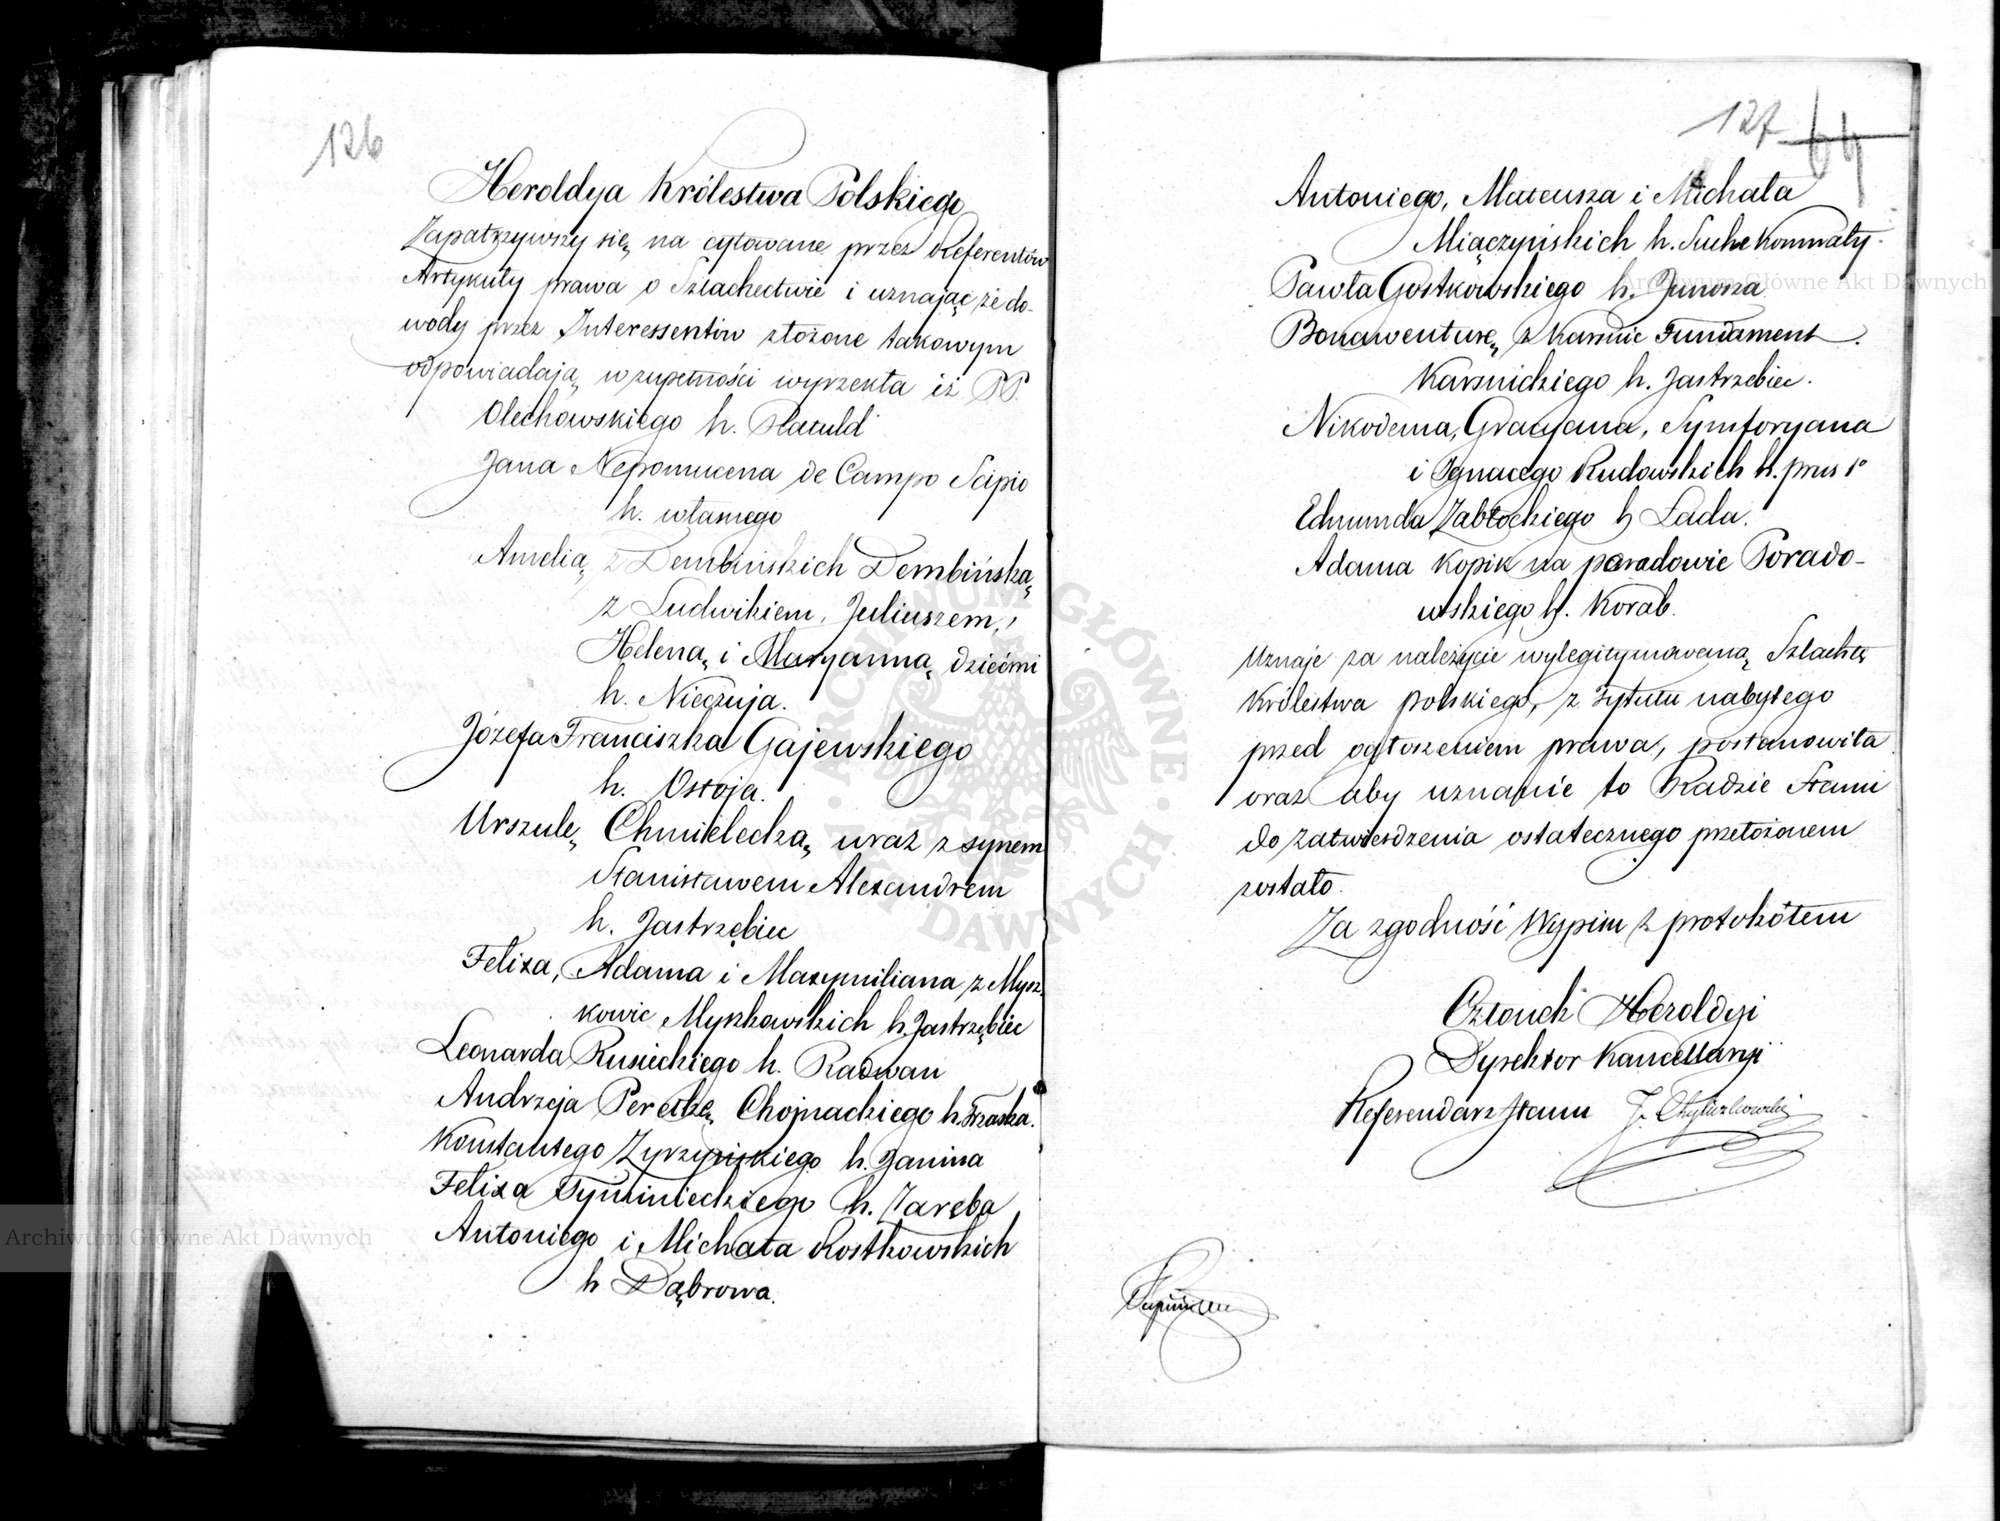 126
Heroldya Królestwa Polskiego
Zapatrzywszy się na cytowane przez Referentów
Artykuły prawa o Szlachectwie i uznając że do-
wody przez Interessentów złożone takowym
odpowiadają w zupełności wyrzekła iż PP.
Olechowskiego h.
Jana Nepomucena de Campo Scipio
h. własnego
Amelią z Dembińskich Dembińską
z Ludwikiem, Juliuszem,
Heleną i Maryanną dziećmi
h. Nieczuja.
Józefa Franciszka Gajewskiego
h. Ostoja.
Urszulę Chmielecką wraz z synem
Stanisławem Alexandrem
h. Jastrzębiec
Felixa, Adama i Maxymiliana z Mysz-
kowic Myszkowskich h. Jastrzębiec
Leonarda Rusieckiego h. Radwan
Andrzeja Peretkę Chojnackiego h. Trzaska.
Konstantego Zyrzyńskiego h. Janina
Felixa Tyminieckiego h. Zaręba
Antoniego i Michała Rostkowskich
h Dąbrowa.
127 64
Antoniego, Mateusza i Michała
Miączyńskich h. Suche Komnaty.
Pawła Gostkowskiego h. Junosza
Bonawenturę z Karśnic Fundament
Karśnickiego h. Jastrzebiec.
Nikodema, Gracyana, Symforyana
i Ignacego Rudowskich h. prus 1º
Edmunda Zabłockiego h Łada.
Adama Kopik na poradowie Porado-
wskiego h. Korab.
Uznaje za należycie wylegitymowaną Szlachtę
Królestwa polskiego, z tytułu nabytego
przed ogłoszeniem prawa, postanowiła
oraz aby uznanie to Radzie Stanu
do zatwierdzenia ostatecznego przełożonem
zostało.
Za zgodność Wypisu z protokółem
Członek Heroldyi
Dyrektor Kancellaryi
Referendarz Stanu J.
Archiwum Główne Akt Dawnych
Archiwum Główne Akt Dawnych
ARCHIWUM GŁÓWNE AKT DAWNYCH